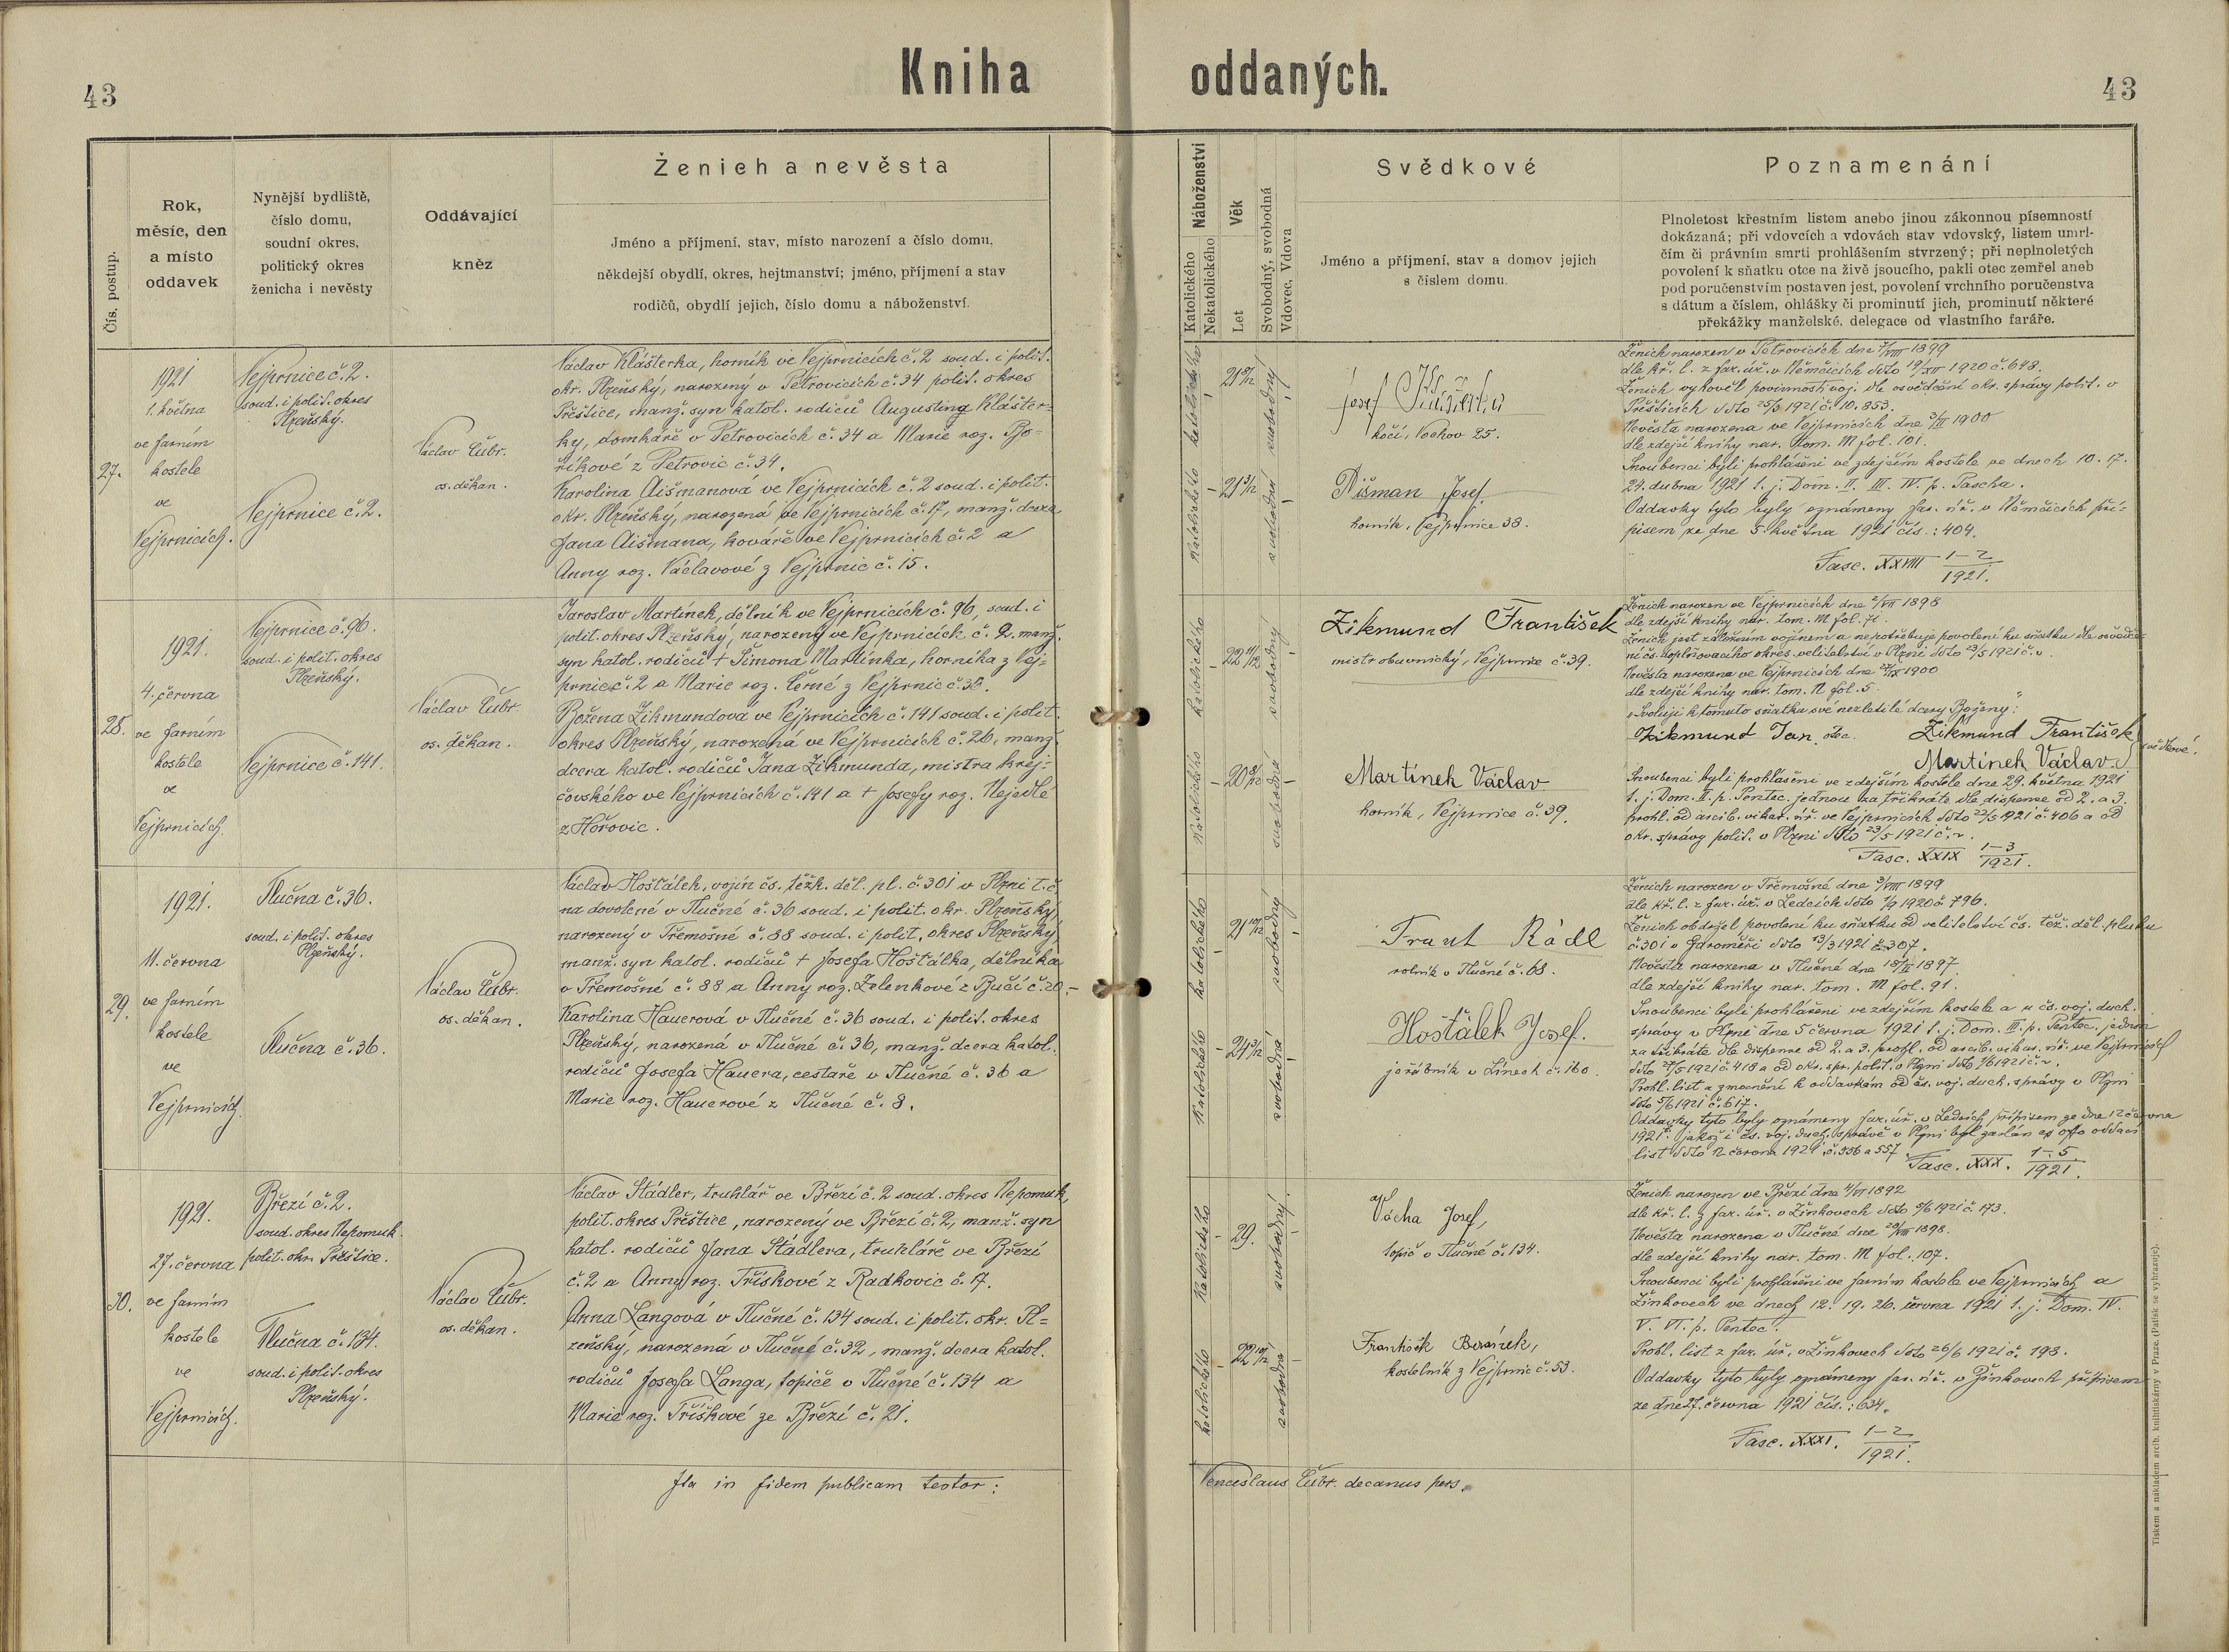 43
Kniha oddaných.
43
Čís. postup.
Rok,
měsíc, den
a místo
oddavek
Nynější bydliště,
číslo domu,
soudní okres,
politický okres
ženicha i nevěsty
Oddávající
kněz
Ženich a nevěsta
Jméno a příjmení, stav, místo narození a číslo domu,
někdejší obydlí, okres, hejtmanství; jméno, příjmení a stav
rodičů, obydlí jejich, číslo domu a náboženství.
Náboženství
Katolického
Nekatolického
Věk
Let
Svobodný, svobodná
Vdovec, Vdova
Svědkové
Jméno a příjmení, stav a domov jejich
s číslem domu.
Poznamenání
Plnoletost křestním listem anebo jinou zákonnou písemností
dokázaná; při vdovcích a vdovách stav vdovský, listem umrl-
čím či právním smrti prohlášením stvrzený; při neplnoletých
povolení k sňatku otce na živě jsoucího, pakli otec zemřel aneb
pod poručenstvím postaven jest, povolení vrchního poručenstva
s dátum a číslem, ohlášky či prominutí jich, prominutí některé
překážky manželské, delegace od vlastního faráře.
27.
1921
1. května
ve farním
kostele
ve
Vejprnicích.
Vejprnice č. 2.
soud. i polit. okres
Plzeňský.
Vejprnice č. 2.
Václav Čubr.
os. děkan.
Václav Klášterka, horník ve Vejprnicích č. 2 soud. i polit.
okr. Plzeňský, narozený v Petrovicích č. 34 polit. okres
Přeštice, manž. syn katol. rodičů Augustina Klášter-
ky, domkáře v Petrovicích č. 34 a Marie roz. Bo-
říkové z Petrovic č. 34.
Karolina Aišmanová ve Vejprnicích č. 2 soud. i polit.
okr. Plzeňský, narozená ve Vejprnicích č. 17, manž. dcera
Jana Aišmana, kováře ve Vejprnicích č. 2 a
Anny roz. Václavové z Vejprnic č. 15.
katolického
21 9/12
svobodný
katolického
21 3/12
svobodná
Josef
kočí, Vochov 25.
Aišman Josef.
horník, Vejprnice 38.
Ženich narozen v Petrovicích dne 7/VIII 1899
dle kř. l. z far. úř. v Němčicích ddto 19/XII 1920 č. 648.
Ženich vyhověl povinnosti voj. dle osvědčení okr. správy polit. v
Přešticích ddto 25/3 1921 č. 10.853.
Nevěsta narozena ve Vejprnicích dne 3/II 1900
dle zdejší knihy nar. tom. M fol. 101.
Snoubenci byli prohlášeni ve zdejším kostele ve dnech 10. 17.
24. dubna 1921 t. j. Dom. II. III. IV. p. Pascha.
Oddavky tyto byly oznámeny far. úř. v Němčicích pří-
pisem ze dne 5. května 1921 čís.: 404.
Fasc. XXVIII 1-2/1921.
28.
1921.
4. června
ve farním
kostele
ve
Vejprnicích.
Vejprnice č. 96.
soud. i polit. okres
Plzeňský.
Vejprnice č. 141.
Václav Čubr.
os. děkan.
Jaroslav Martínek, dělník ve Vejprnicích č. 96, soud. i
polit. okres Plzeňský, narozený ve Vejprnicích č. 2. manž.
syn katol. rodičů † Šimona Martínka, horníka z Vej-
prnic č. 2 a Marie roz. Černé z Vejprnic č. 35.
Božena Zikmundová ve Vejprnicích č. 141 soud. i polit.
okres Plzeňský, narozená ve Vejprnicích č. 26, manž.
dcera katol. rodičů Jana Zikmunda, mistra krej-
čovského ve Vejprnicích č. 141 a † Josefy roz. Nejedlé
z Hořovic.
katolického
22 11/12
svobodný
katolického
20 8/12
svobodná
Zikmund František
mistr obuvnický, Vejprnice č. 39.
Martínek Václav
horník, Vejprnice č. 39.
Ženich narozen ve Vejprnicích dne 2/VII 1898
dle zdejší knihy nar. tom. M fol. 71.
Ženich jest záložním vojínem a nepotřebuje povolení ku sňatku dle osvědče-
ní čs. doplňovacího okres. velitelství v Plzni ddto 23/5 1921 č. v.
Nevěsta narozena ve Vejprnicích dne 27/IX 1900
dle zdejší knihy nar. tom. N fol. 5.
„Svoluji k tomuto sňatku své nezletilé dcery Boženy:"
Zikmund Jan, otec. Zikmund František
Martínek Václav svědkové.
Snoubenci byli prohlášeni ve zdejším kostele dne 29. května 1921
t. j. Dom. II. p. Pentec. jednou za třikráte dle dispense od 2. a 3.
prohl. od arcib. vikar. úř. ve Vejprnicích ddto 22/5 1921 č. 406 a od
okr. správy polit. v Plzni ddto 23/5 1921 č. v.
Fasc. XXIX 1-3/1921.
29.
1921.
11. června
ve farním
kostele
ve
Vejprnicích.
Tlučna č. 36.
soud. i polit. okres
Plzeňský.
Tlučna č. 36.
Václav Čubr.
os. děkan.
Václav Hošťálek, vojín čs. těžk. děl. pl. č. 301 v Plzni t. č.
na dovolené v Tlučné č. 36 soud. i polit. okr. Plzeňský,
narozený v Třemošné č. 88 soud. i polit. okres Plzeňský
manž. syn katol. rodičů † Josefa Hošťálka, dělníka
v Třemošné č. 88 a Anny roz. Zelenkové z Bučí č. 20.-
Karolina Hauerová v Tlučné č. 36 soud. i polit. okres
Plzeňský, narozená v Tlučné č. 36, manž. dcera katol.
rodičů Josefa Hauera, cestaře v Tlučné č. 36 a
Marie roz. Hauerové z Tlučné č. 8.
katolického
21 10/12
svobodný
katolického
24 3/12
svobodná
Frant Rádl
rolník v Tlučné č. 68.
Hošťálek Josef.
jeřábník v Línech č. 160.
Ženich narozen v Třemošné dne 3/VIII 1899
dle kř. l. z far. úř. v Ledcích ddto 1/9 1920 č 796.
Ženich obdržel povolení ku sňatku od velitelství čs. těž. děl. pluku
č. 301 v Jaroměři ddto 13/3 1921 č. 307.
Nevěsta narozena v Tlučné dne 18/II 1897
dle zdejší knihy nar. tom. M fol. 91.
Snoubenci byli prohlášeni ve zdejším kostele a u čs. voj. duch.
správy v Plzni dne 5 června 1921 t. j. Dom. III. p. Pentec. jednou
za třikráte dle dispense od 2. a 3. prohl. od arcib. vikar. úř. ve Vejprnicích
ddto 27/5 1921 č. 418 a od okr. spr. polit. v Plzni ddto 1/6 1921 č. v.
Prohl. list a zmocnění k oddavkám od čs. voj. duch. správy v Plzni
ddto 5/6 1921 č. 617.
Oddavky tyto byly oznámeny far. úř. v Ledcích přípisem ze dne 12 června
1921. jakož i čs. voj. duch. správě v Plzni byl zaslán ex offo oddací
list ddto 12 června 1921 č. 556 a 557. Fasc. XXX. 1-5/1921.
30.
1921.
27. června
ve farním
kostele
ve
Vejprnicích.
Březí č. 2.
soud. okres Nepomuk.
polit. okr. Přeštice.
Tlučna č. 134.
soud. i polit. okres
Plzeňský.
Václav Čubr.
os. děkan.
Václav Stádler, truhlář ve Březí č. 2 soud. okres Nepomuk,
polit. okres Přeštice, narozený ve Březí č. 2, manž. syn
katol. rodičů Jana Stádlera, truhláře ve Březí
č. 2 a Anny roz. Tříškové z Radkovic č. 17.
Anna Langová v Tlučné č. 134 soud. i polit. okr. Pl-
zeňský, narozená v Tlučné č. 32, manž. dcera katol.
rodičů Josefa Langa, topiče v Tlučné č. 134 a
Marie roz. Tříškové ze Březí č. 21.
katolického
29.
svobodný.
katolického
22 10/12
svobodna
Vácha Josef,
topič v Tlučné č. 134.
František Beránek,
kostelník z Vejprnic č. 53.
Ženich narozen ve Březí dne 4/VI 1892
dle kř. l. z far. úř. v Žinkovech ddto 5/6 1921 č. 173.
Nevěsta narozena v Tlučné dne 20/VIII 1898.
dle zdejší knihy nar. tom. M fol. 107.
Snoubenci byli prohlášeni ve farním kostele ve Vejprnicích a
Žinkovech ve dnech 12. 19. 26. června 1921 t. j. Dom. IV.
V. VI. p. Pentec.
Prohl. list z far. úř. v Žinkovech ddto 26/6 1921 č. 198.
Oddavky tyto byly oznámeny far. úř. v Žinkovech přípisem
ze dne 27. června 1921 čís.: 634.
Fasc. XXXI. 1-2/1921.
Ita in fidem publicam testor: Venceslaus Čubr. decanus pers.
Tiskem a nákladem arcib. knihtiskárny v Praze. (Patisk se vyhrazuje).